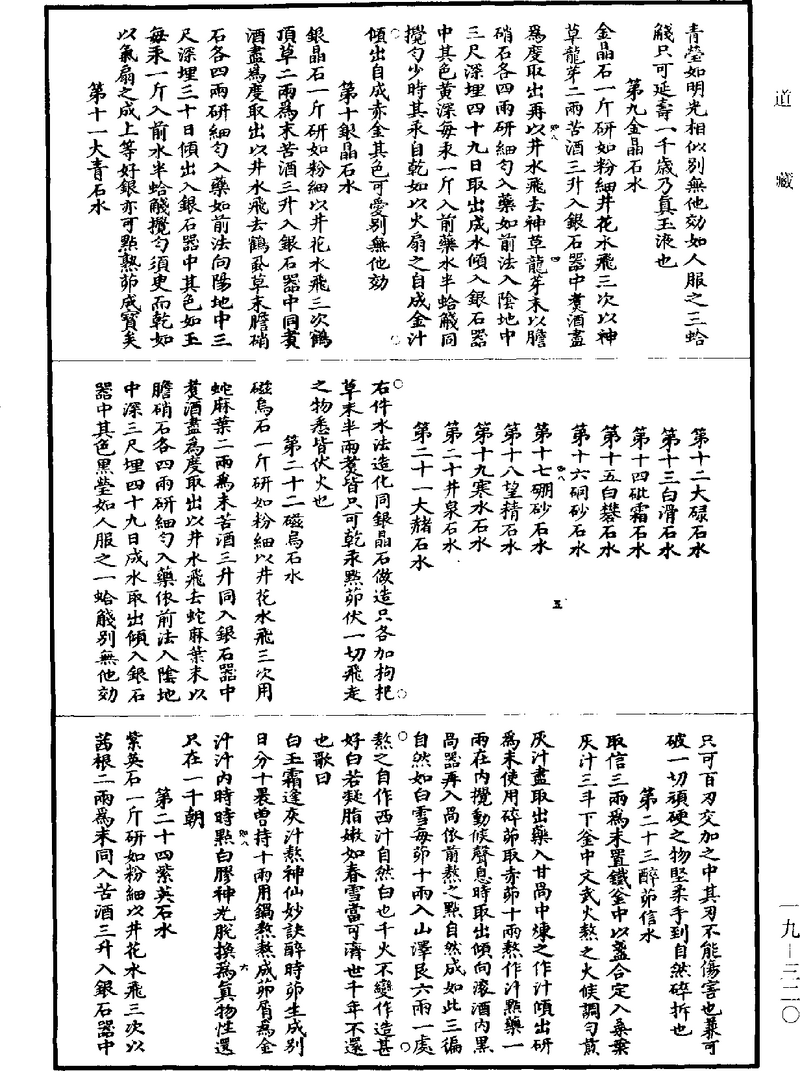 道藏
青瑩如明光相似別無他効如人服之三蛤
觚只可延壽一千歲乃真玉液也
第九金晶石水
金晶石一斤研如粉細井花水飛三次以神
草龍芽二兩苦酒三升入銀石器中煑酒盡
為度取出再以井水飛去神草龍芽末以膽
硝石各四兩研細勻入藥如前法入陰地中
三尺深埋四十九日取出成水傾入銀石器
中其色黄深每汞一斤入前藥水半蛤觚同
攪勻少時其汞自乾如以火扇之自成金汁
傾出自成赤金其色可愛別無他効
第十銀晶石水
銀晶石一斤研如粉細以井花水飛三次鶴
頂草二兩為末苦酒三升入銀石器中同煑
酒盡為度取出以井水飛去鶴虱草末膽硝
石各四兩研細勻入藥如前法向陽地中三
尺深埋三十日傾出入銀石器中其色如玉
每汞一斤入前水半蛤觚攪勻須臾而乾如
以氣扇之成上等好銀亦可點熟茆成寶矣
第十一大青石水
第十二大碌石水
第十三白滑石水
第十四砒霜石水
第十五白礬石水
第十六硇砂石水
第十七硼砂石水
第十八望精石水
第十九寒水石水
第二十井泉石水
第二十一大赭石水
右件水法造化同銀晶石做造只各加枸杞
草末半兩煑皆只可乾汞點茆伏一切飛走
之物悉皆伏火也
第二十二磁烏石水
磁烏石一斤研如粉細以井花水飛三次用
蛇麻葉二兩為末苦酒三升同入銀石器中
煑酒盡為度取出以井水飛去蛇麻葉末以
膽硝石各四兩研細勻入藥依前法入陰地
中深三尺埋四十九日成水取出傾入銀石
器中其色黑瑩如人服之一蛤觚別無他効
五
只可百刃交加之中其刃不能傷害也兼可
破一切頑硬之物堅柔手到自然碎拆也
第二十三醉茆信水
取信三兩為末置鐵釜中以盞合定入桑葉
灰汁三斗下釜中文武火熬之火候調勻煎
灰汁盡取出藥入甘鍋中煉之作汁傾出研
為末使用碎茆取赤茆十兩熬作汁點藥一
兩在內攪動候聲息時取出傾向滚酒內黑
鍋器再入鍋依前熬之點自然成如此三徧
自然如白雪每茆十兩入山澤艮六兩一處
熬之自作西汁自然白也千火不變作造甚
好白若凝脂嫩如春雪當可濟世千年不還
也歌曰
白玉霜逢灰汁熬神仙妙訣醉時茆生成別
日分十晨曾持十兩用鍋熬熬成茆屑為金
汁汁內時時點白膠神光脫換為真物性還
只在一千朝
六
第二十四紫英石水
紫英石一斤研如粉細以井花水飛三次以
茜根二兩為末同入苦酒三升入銀石器中
一九—三二〇